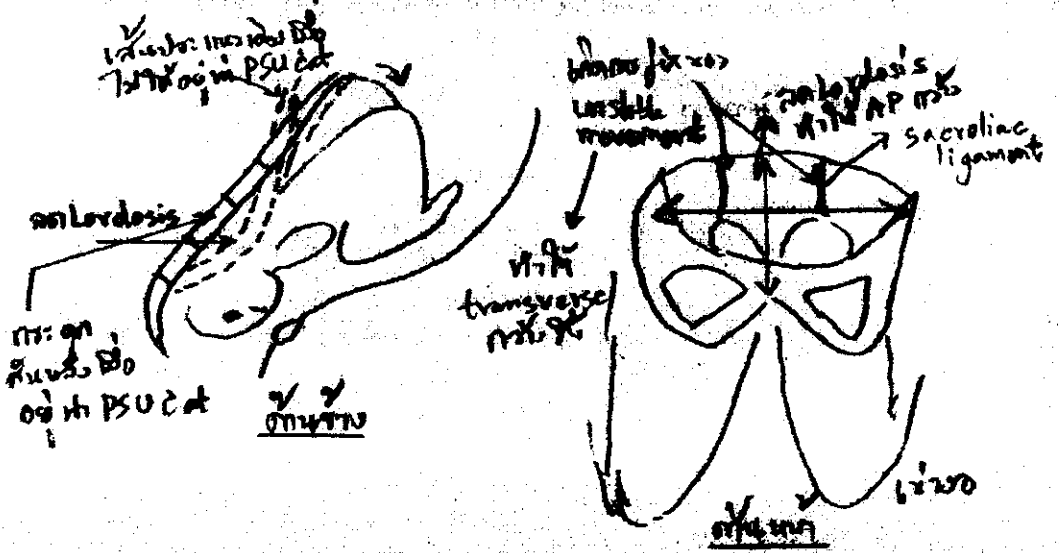 เส้นประแนวเดิมเมื่อ
ไม่ได้อยู่ท่า PSU cat
ลด Lordosis
กระดูก
สันหลังเมื่อ
อยู่ท่า PSU cat
ด้านข้าง
unstable
movement
ทำให้
transverse
กว้างขึ้น
ลด Lordosis
ทำให้ AP กว้าง
sacroliac
ligament
เข่างอ
ด้านหน้า